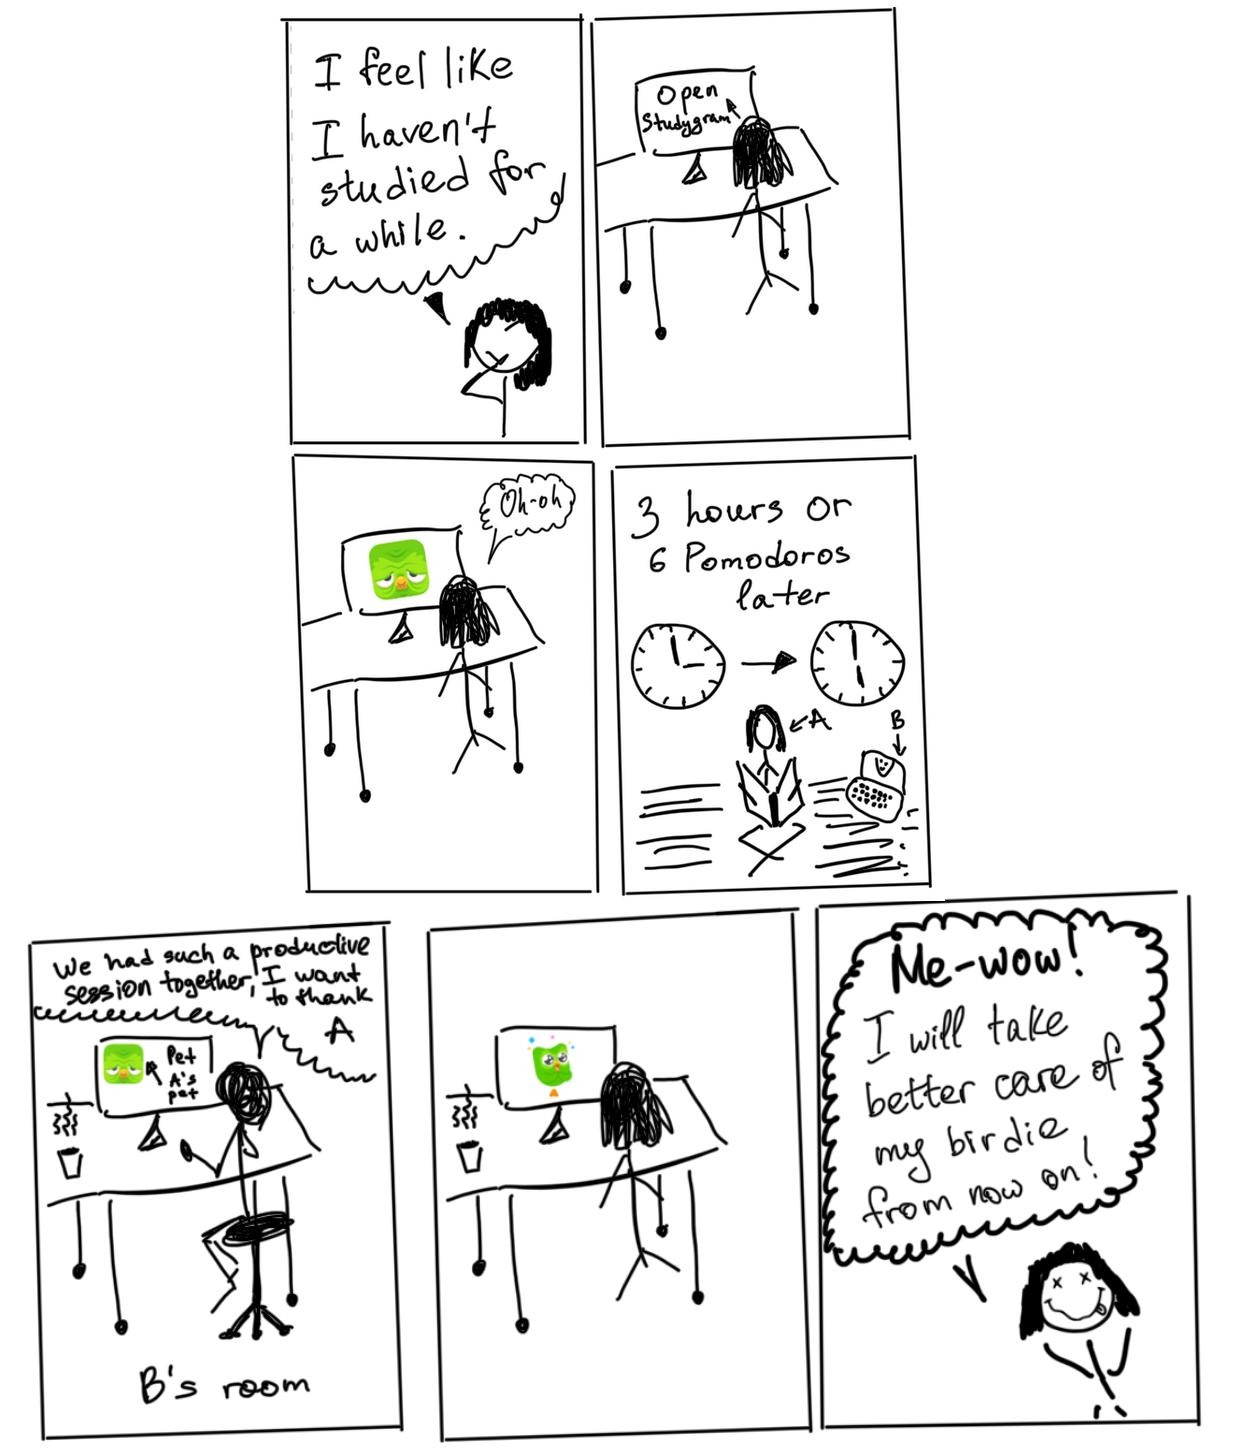 I feel like
I haven't
studied for
a while.
Open
Studygram
Oh-oh
3 hours or
6 Pomodoros
later
A
B
We had such a productive
session together, I want
to thank
A
Pet
A's
pet
B's room
Me-wow!
I will take
better care of
my birdie
from now on!